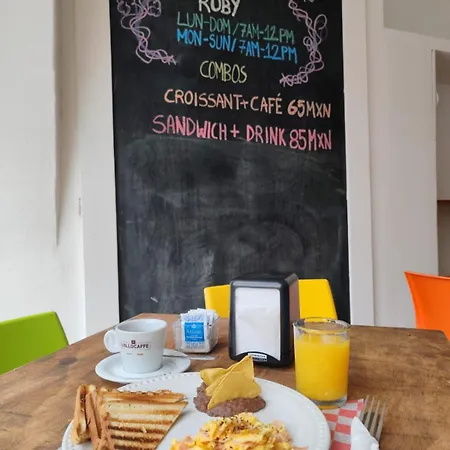 ROBY
LUN-DOM/7AM-12PM
MON-SUN/7AM-12PM
COMBOS
CROISSANT+CAFÉ 65MXN
SANDWICH+ DRINK 85MXN